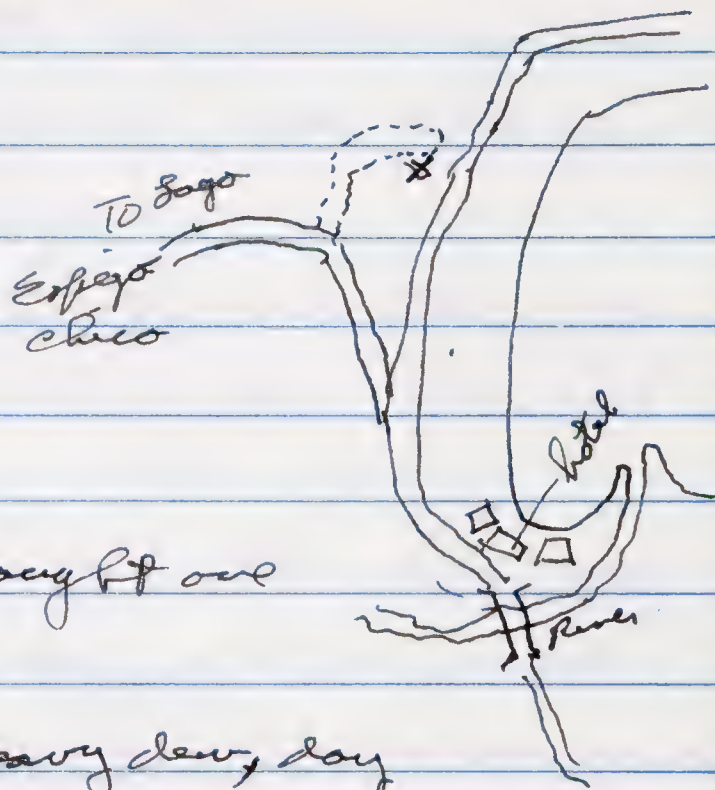 To Lago
Espejo
Chico
hotel
River
ought one
eavy dew, day